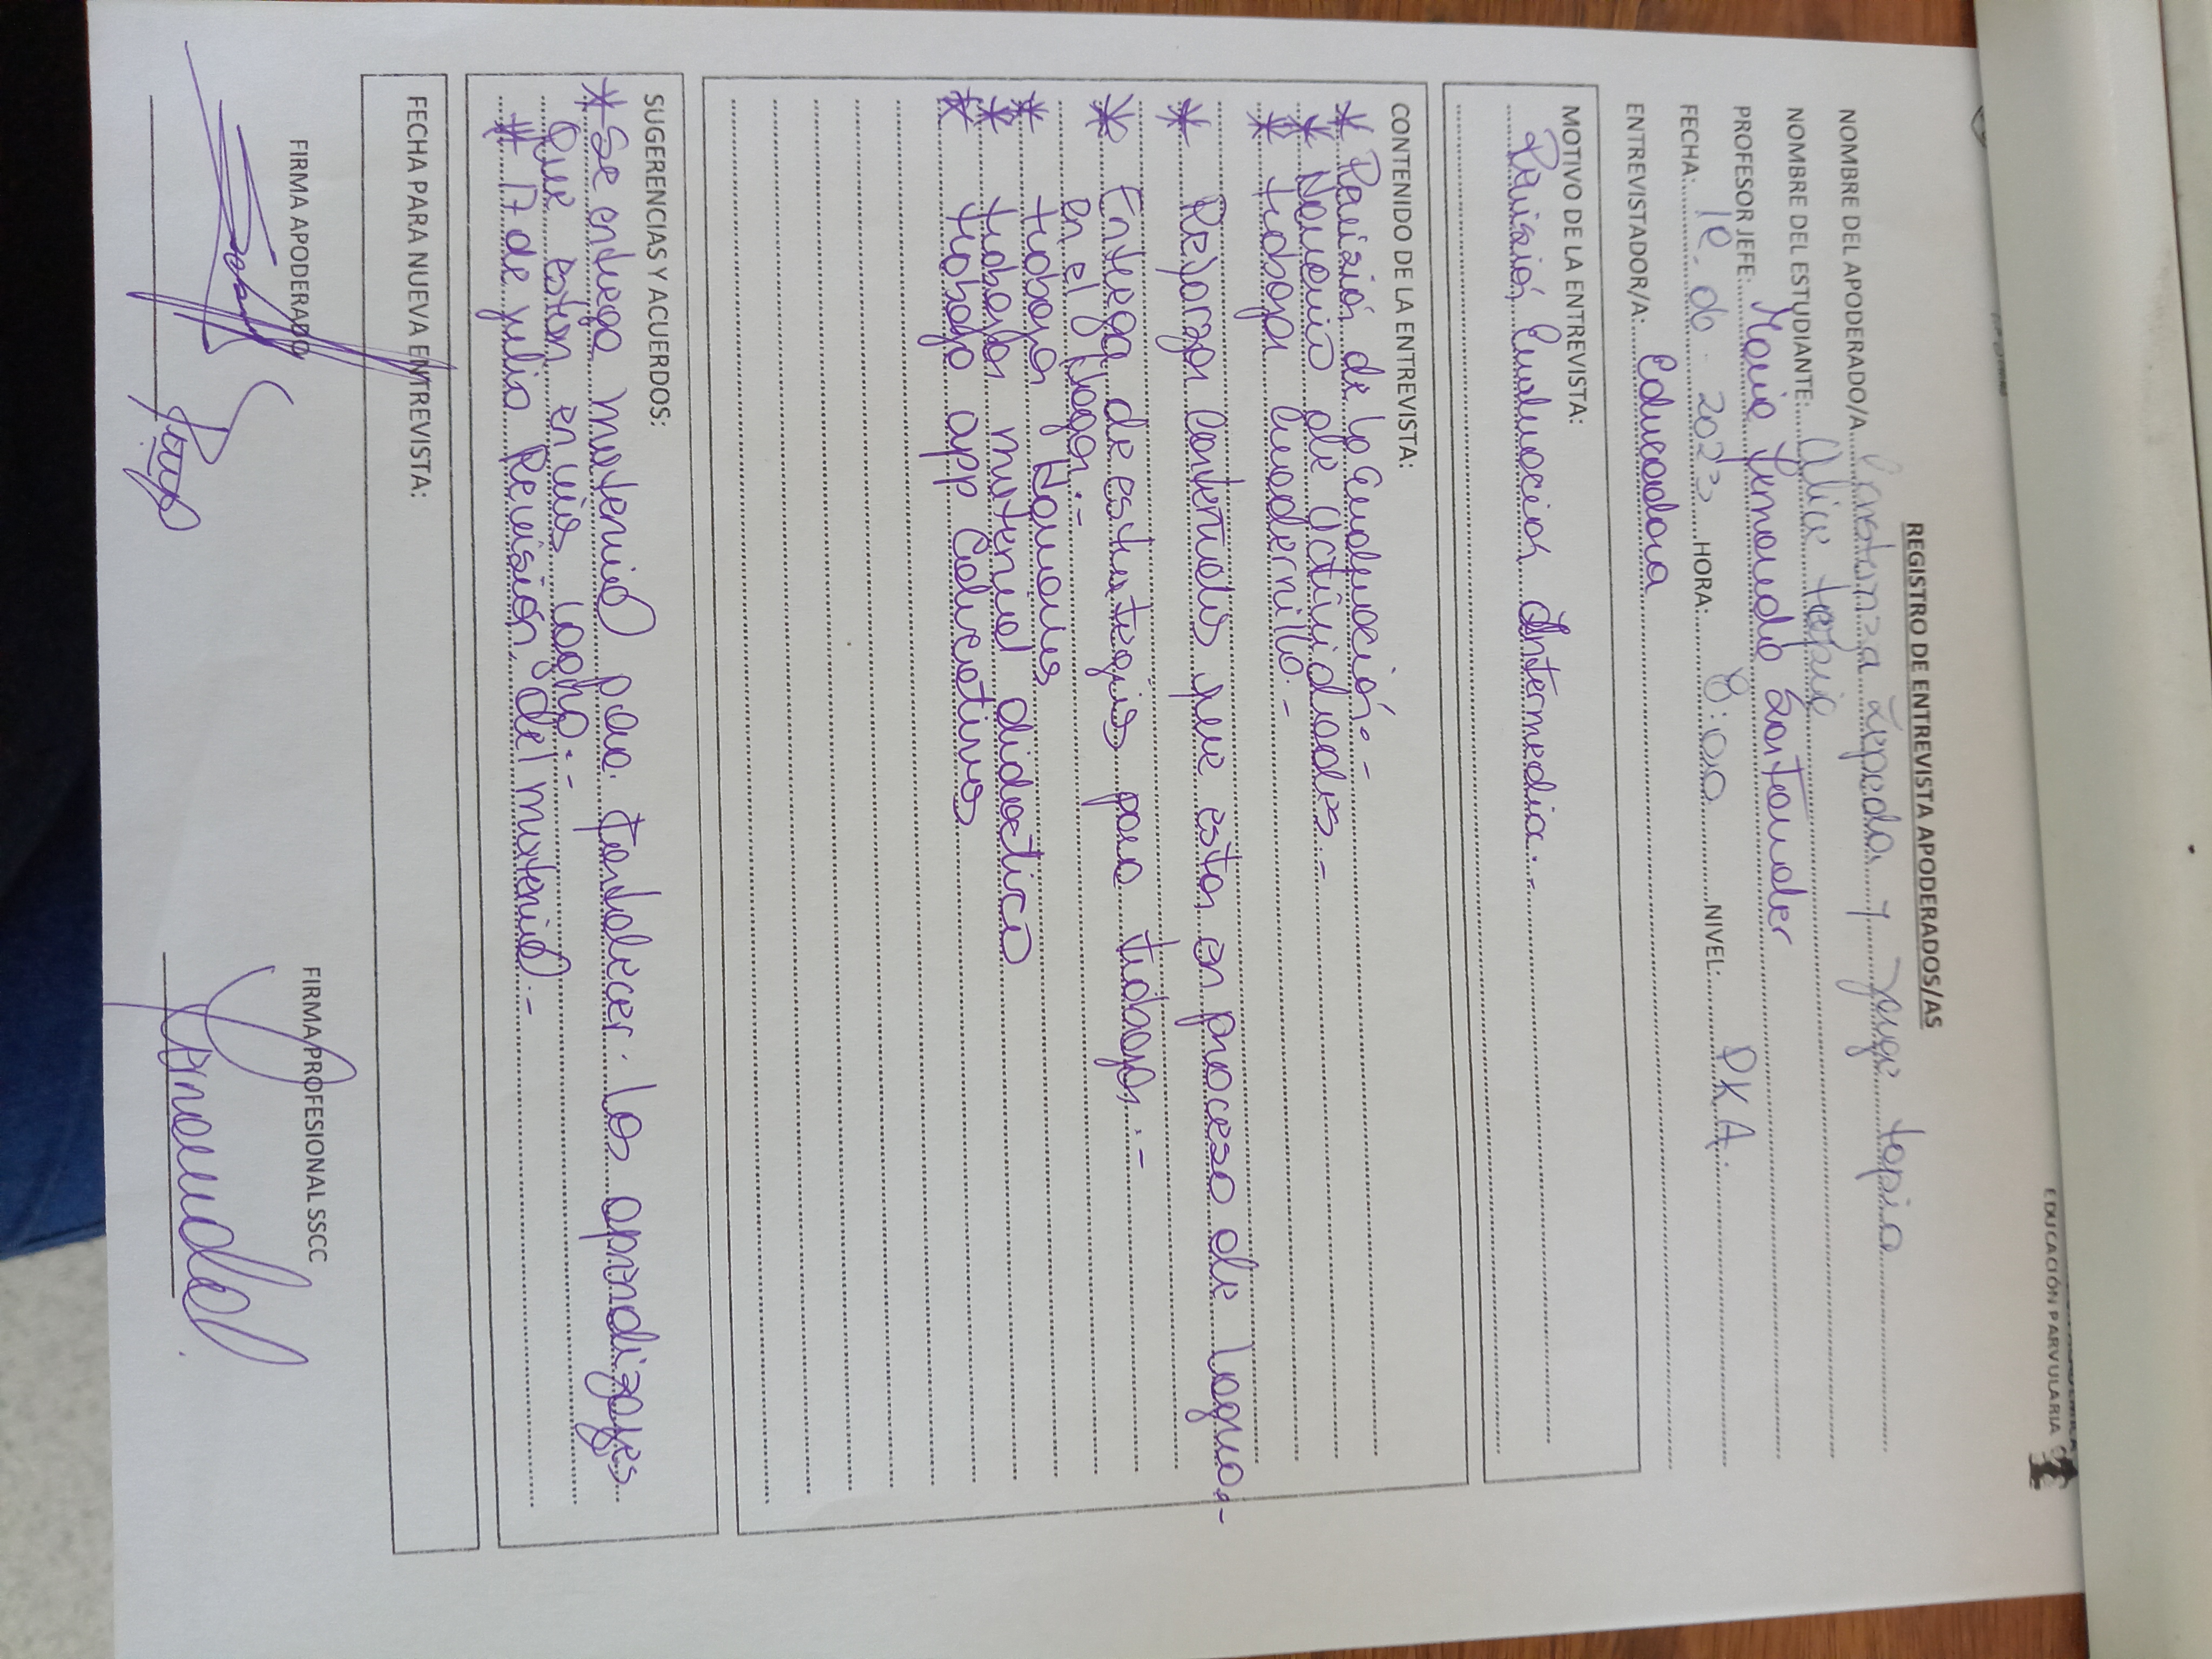 EDUCACIÓN PARVULARIA
REGISTRO DE ENTREVISTA APODERADOS/AS
NOMBRE DEL APODERADO/A: Constanza Zepeda y Jorge tapia
NOMBRE DEL ESTUDIANTE: Alice tapia
PROFESOR JEFE: Maria Fernanda Santander
FECHA: 06. 2023 HORA: 8:00 NIVEL: PKA.
ENTREVISTADOR/A: Educadora
MOTIVO DE LA ENTREVISTA:
Revisión Evaluación Intermedia.-
CONTENIDO DE LA ENTREVISTA:
* Revisión de la evaluación.-
* de actividades.-
* trabajar cuadernillo.-
* Reforzar contenidos que estan en proceso de logro.-
* Entrega de estrategias para trabajar.-
en el hogar.-
* trabajar
* trabajar material didactico
* trabajo app Educativas
SUGERENCIAS Y ACUERDOS:
* Se entrega material para fortalecer los aprendizajes
Que estan en vias logro.-
* 17 de julio Revisión del material.-
FECHA PARA NUEVA ENTREVISTA:
FIRMA APODERADO
FIRMA PROFESIONAL SSCC